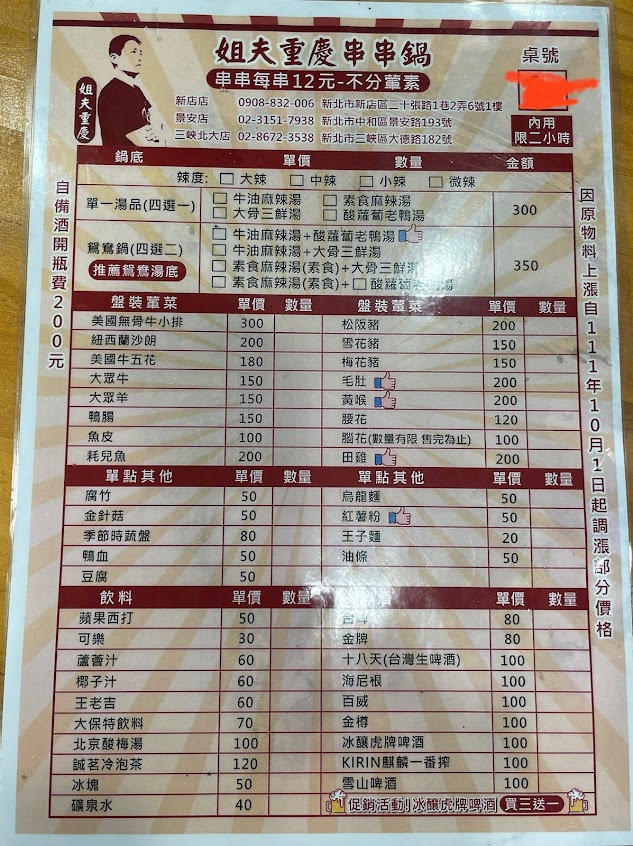 姐夫重慶串串鍋
桌號
串串每串12元-不分葷素
姐夫重慶
新店店 0908-832-006 新北市新店區二十張路1巷2弄6號1樓
景安店 02-3151-7938 新北市中和區景安路193號
三峽北大店 02-8672-3538 新北市三峽區大德路182號
內用
限二小時
自備酒開瓶費200元
因原物料上漲自111年10月1日起調漲部分價格
鍋底 單價 數量 金額
辣度: 大辣 中辣 小辣 微辣
單一湯品(四選一) 牛油麻辣湯 素食麻辣湯 300
大骨三鮮湯 酸蘿蔔老鴨湯
鴛鴦鍋(四選二) 牛油麻辣湯+酸蘿蔔老鴨湯 350
牛油麻辣湯+大骨三鮮湯
推薦鴛鴦湯底 素食麻辣湯(素食)+大骨三鮮湯
素食麻辣湯(素食)+酸蘿蔔老鴨湯
盤裝葷菜 單價 數量 盤裝葷菜 單價 數量
美國無骨牛小排 300 松阪豬 200
紐西蘭沙朗 200 雪花豬 150
美國牛五花 180 梅花豬 150
大眾牛 150 毛肚 200
大眾羊 150 黃喉 200
鴨腸 150 腰花 120
魚皮 100 腦花(數量有限 售完為止) 100
耗兒魚 200 田雞 200
單點其他 單價 數量 單點其他 單價 數量
腐竹 50 烏龍麵 50
金針菇 50 紅薯粉 50
季節時蔬盤 80 王子麵 20
鴨血 50 油條 50
豆腐 50
飲料 單價 數量 酒 單價 數量
蘋果西打 50 台啤 80
可樂 30 金牌 80
蘆薈汁 60 十八天(台灣生啤酒) 100
椰子汁 60 海尼根 100
王老吉 60 百威 100
大保特飲料 70 金樽 100
北京酸梅湯 100 冰釀虎牌啤酒 100
誠茗冷泡茶 120 KIRIN麒麟一番搾 100
冰塊 50 雪山啤酒 100
礦泉水 40 促銷活動!冰釀虎牌啤酒 買三送一